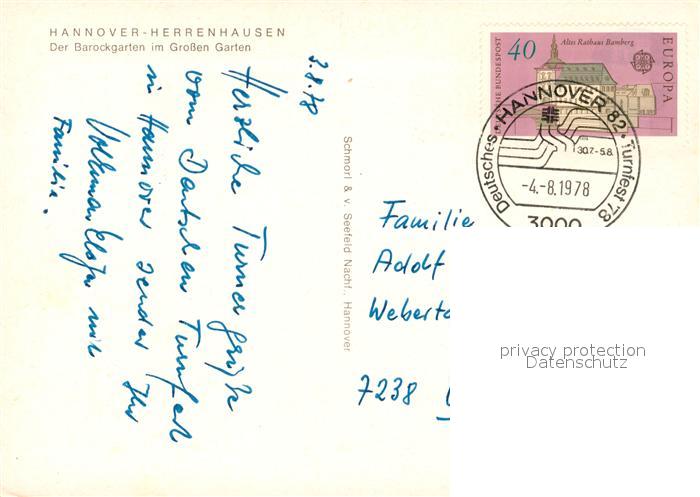 HANNOVER-HERRENHAUSEN
Der Barockgarten im Großen Garten
3.8.78
Herzliche Turnergrüße
vom Deutschen Turnfest
in Hannover sendet Ihr
Volkmar mit
Familie.
Schmorl & v. Seefeld Nachf., Hannover
40
Altes Rathaus Bamberg
EUROPA
DEUTSCHE BUNDESPOST
HANNOVER 82
Deutsches Turnfest '78
30.7.-5.8.
-4.-8.1978
3000
Familie
Adolf
7238
privacy protection
Datenschutz